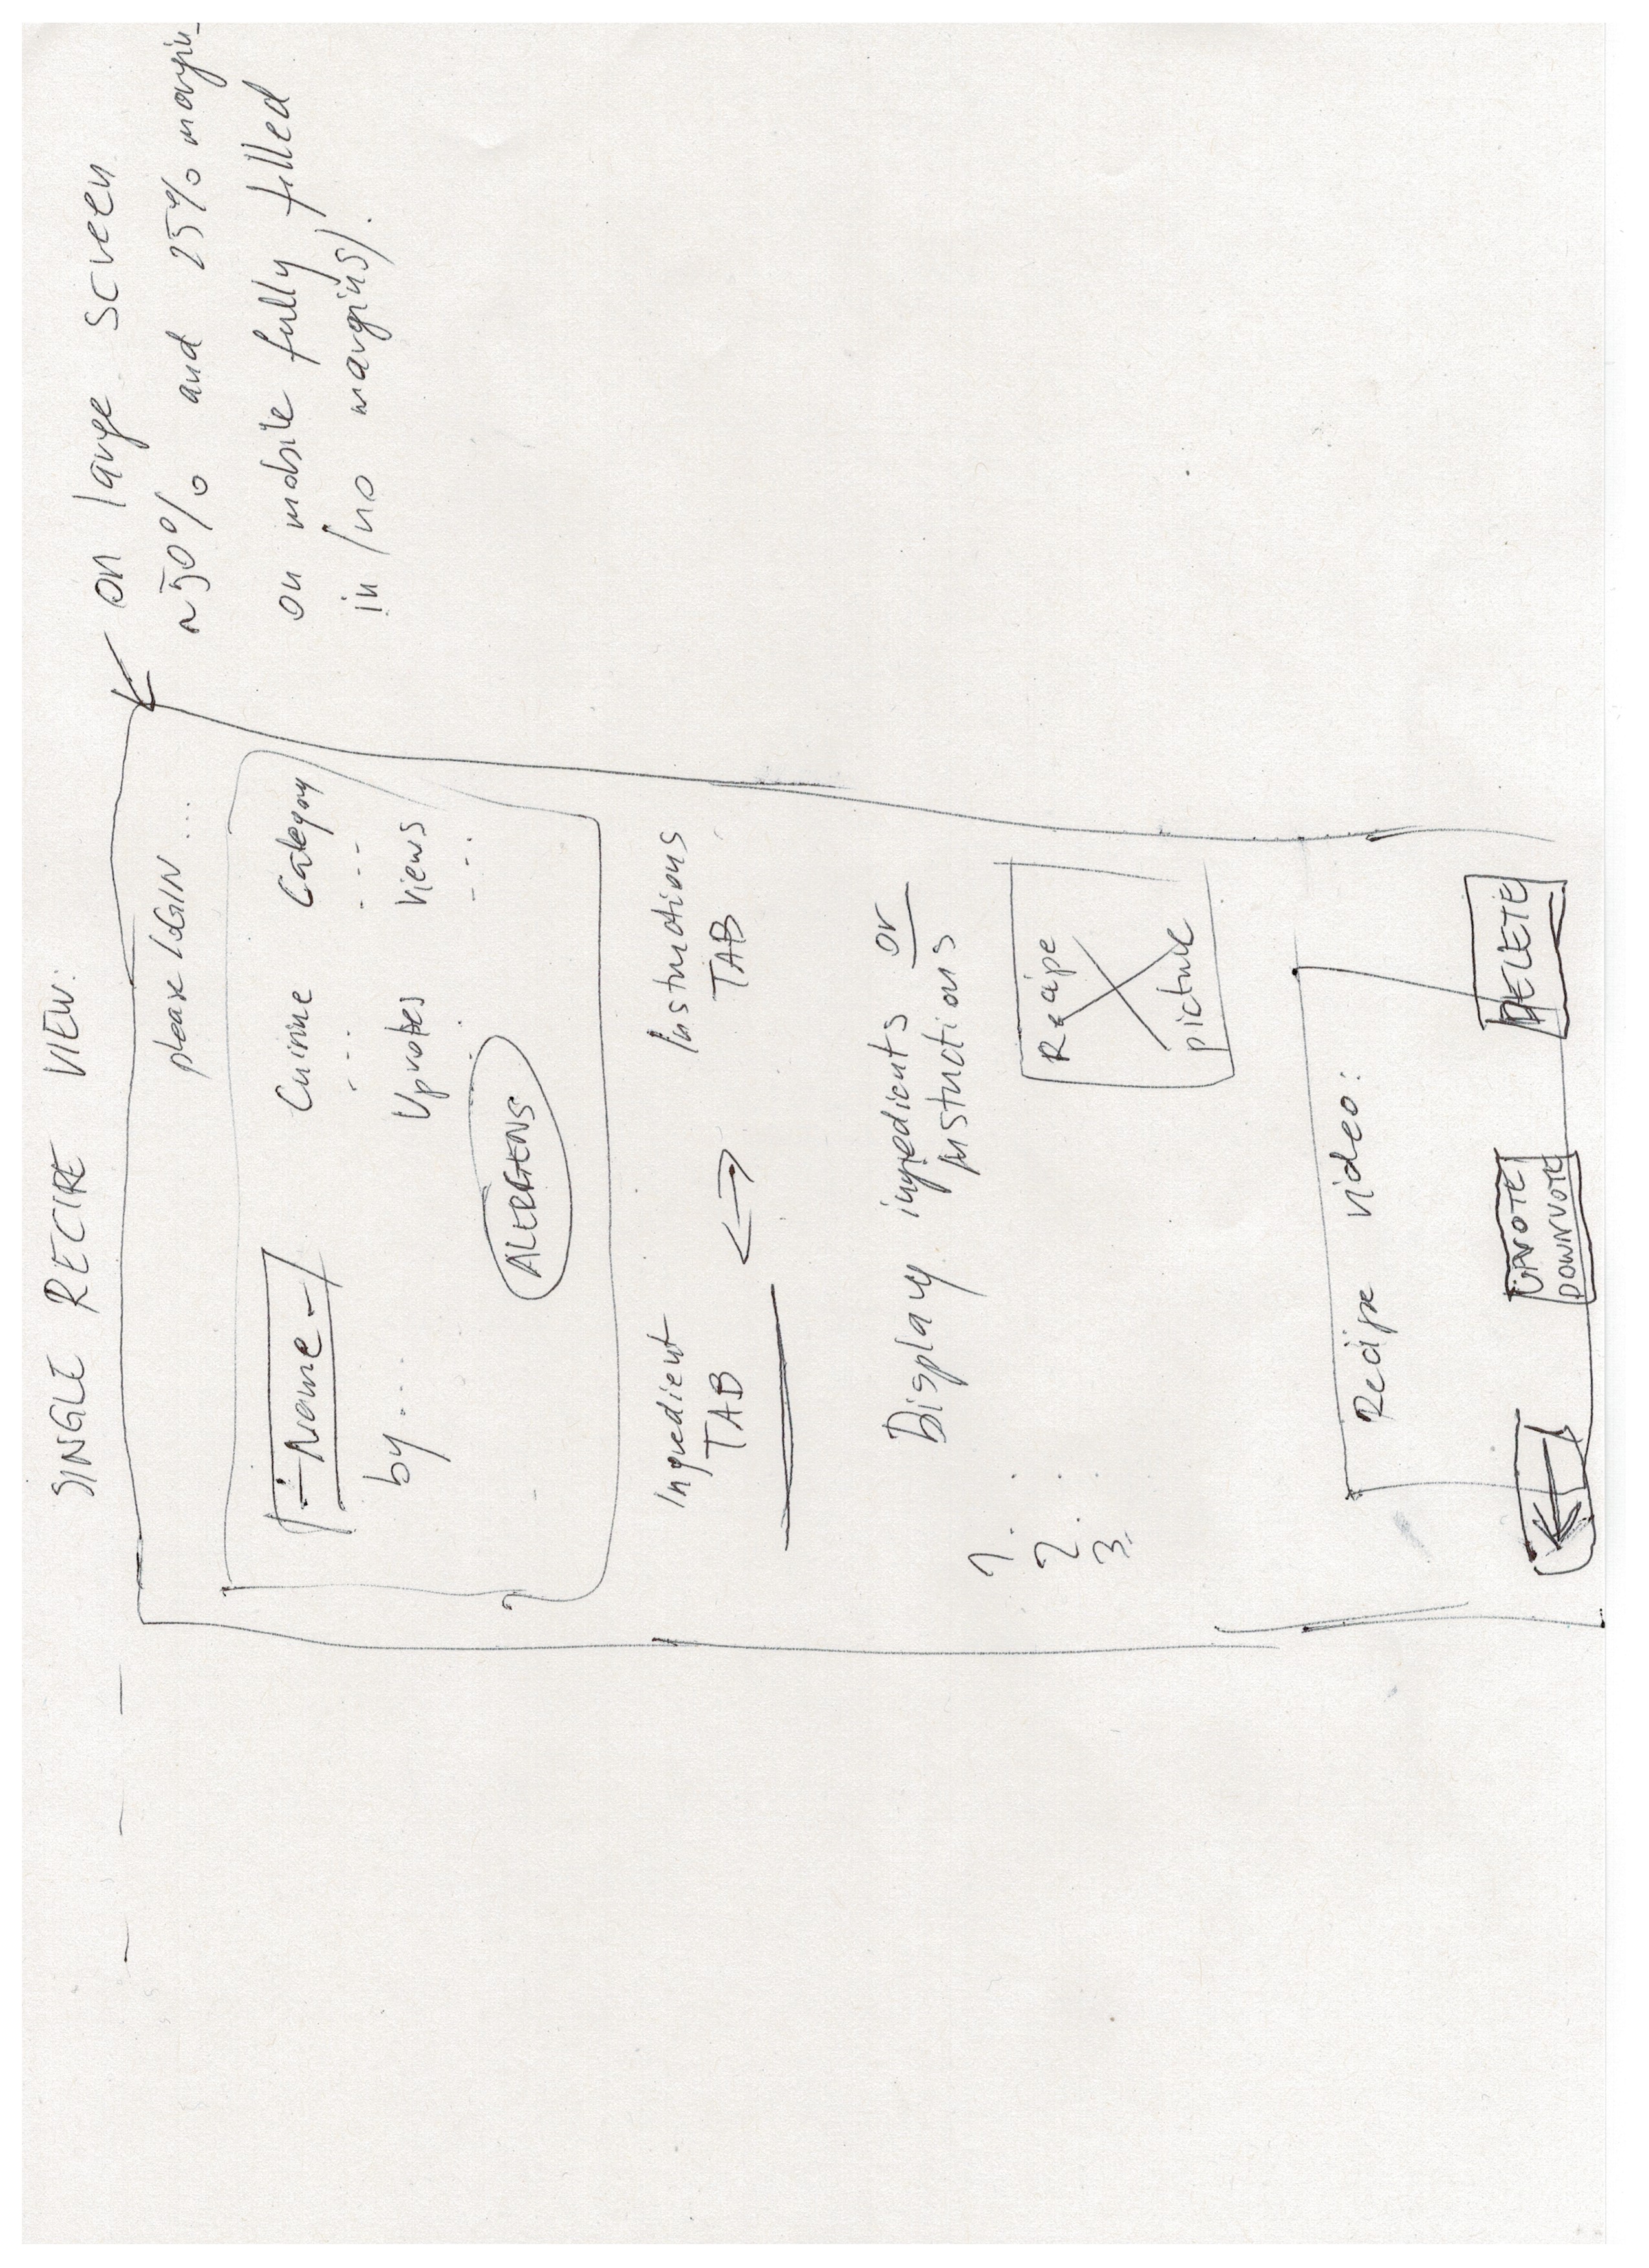 SINGLE RECIPE VIEW:
on large screen
~50% and 25% margin
on mobile fully filled
in (no margins).
please LOGIN ...
Name
by ...
Cuisine Category
... ...
Upvotes Views
... ...
ALERGENS
Ingredient
TAB
Instructions
TAB
Display ingredients or
instuctions
1. .
2. .
3. .
Recipe
picture
Recipe video:
UPVOTE/
DOWNVOTE
DELETE